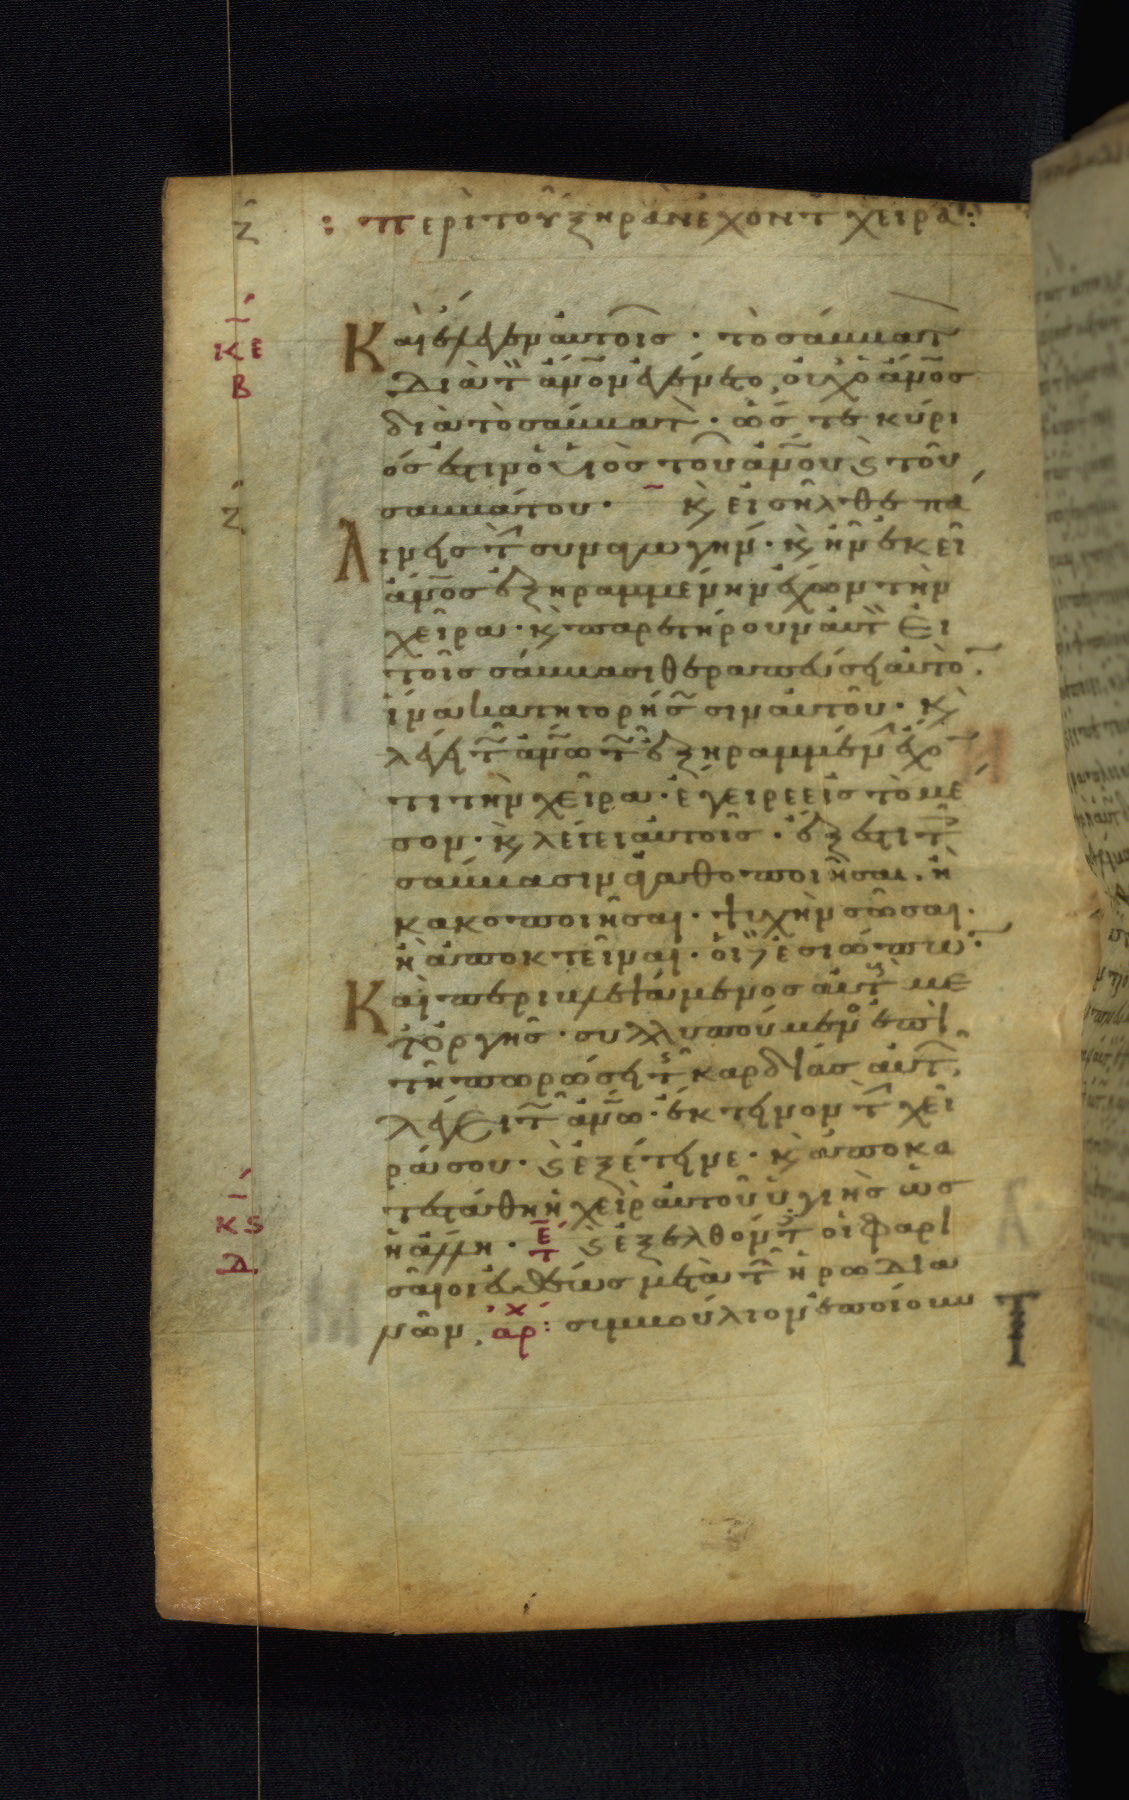 ζ : περὶ τοῦ ξηρὰν ἔχοντ χεῖρα :
Καὶ ἔλεγεν αὐτοῖς · τὸ σάββατ
ΚΕ
Β
διὰ τ ἄνον ἐγένετο, οὐχ ὁ ἄνος
διὰ τὸ σάββατ · ὥστε κύρι
ός ἐστιν ὁ υἱὸς τοῦ ἀνου ϛ τοῦ
ζ σαββάτου · κ εἰσῆλθε πά
Λιν εἰς τ συναγωγήν · κ ἦν ἐκεῖ
ἄνος ἐξηραμμένην ἔχων τὴν
χεῖρα · κ παρετήρουν αὐτ εἰ
τοῖς σάββασι θεραπεύσει αὐτο
ἵνα κατηγορήσσιν αὐτοῦ · κ
λέγει τ ἀνω τ ἐξηραμμέν ἔχο
τι τὴν χεῖρα · ἔγειρε εἰς τὸ μέ
σον · κ λέγει αὐτοῖς · ἔξεστι τ
σάββασιν ἀγαθοποιῆσαι · ἢ
κακοποιῆσαι · ψυχὴν σῶσαι ·
ἢ ἀποκτεῖναι · οἱ δ ἐσιώπω
Καὶ περιβλεψάμενος αὐτ με
τ ὀργῆς · συλλυπούμεν ἐπὶ
τῇ πωρώσει τ καρδίας αὐτ ·
λέγει τ ἀνω · ἔκτεινον τ χεῖ
ρά σου · ϛ ἐξέτεινε · κ ἀποκα
τεστάθη ἡ χεὶρ αὐτοῦ ὑγιὴς ὡς
Κϛ
Δ
ἡ ἄλλη · τε ϛ ἐξελθόντ οἱ Φαρι
σαῖοι εὐθέως μετὰ τ ἡρωδια
νῶν, αρχ : συμβούλιον ἐποίουν